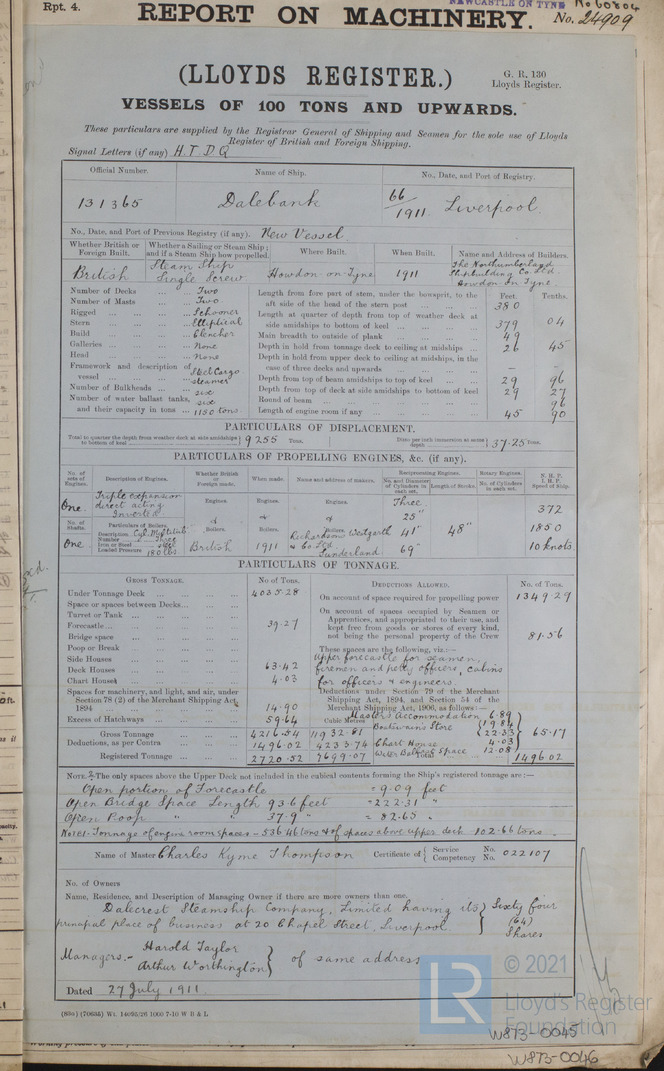 Rpt. 4.
REPORT ON MACHINERY.
NEWCASTLE ON TYNE No 60804
No. 24909
(LLOYDS REGISTER.)
G. R. 130
Lloyds Register.
VESSELS OF 100 TONS AND UPWARDS.
These particulars are supplied by the Registrar General of Shipping and Seamen for the sole use of Lloyds
Register of British and Foreign Shipping.
Signal Letters (if any) H.T.D.Q
Official Number. Name of Ship. No., Date, and Port of Registry.
131365 Dalebank 66/1911. Liverpool.
No., Date, and Port of Previous Registry (if any). New Vessel
Whether British or Foreign Built. Whether a Sailing or Steam Ship; and if a Steam Ship how propelled. Where Built. When Built. Name and Address of Builders.
British Steam Ship Single Screw Howdon-on-Tyne 1911 The Northumberland Shipbuilding Co. Ltd Howdon on Tyne.
Feet. Tenths.
Number of Decks ... Two
Number of Masts ... Two
Rigged ... Schooner
Stern ... Elliptical
Build ... Clencher
Galleries ... None
Head ... None
Framework and description of vessel ... Steel Cargo steamer
Number of Bulkheads ... six
Number of water ballast tanks, ... six
and their capacity in tons ... 1150 tons.
Length from fore part of stem, under the bowsprit, to the
aft side of the head of the stern post ... 380
Length at quarter of depth from top of weather deck at
side amidships to bottom of keel ... 379 04
Main breadth to outside of plank ... 49
Depth in hold from tonnage deck to ceiling at midships ... 26 45
Depth in hold from upper deck to ceiling at midships, in the
case of three decks and upwards ... – –
Depth from top of beam amidships to top of keel ... 29 96
Depth from top of deck at side amidships to bottom of keel 29 27
Round of beam ... 96
Length of engine room if any ... 45 90
PARTICULARS OF DISPLACEMENT.
Total to quarter the depth from weather deck at side amidships to bottom of keel 9255 Tons. Ditto per inch immersion at same depth 37.25 Tons.
PARTICULARS OF PROPELLING ENGINES, &c. (if any).
No. of sets of Engines. Description of Engines. Whether British or Foreign made. When made. Name and address of makers. Reciprocating Engines. Rotary Engines. N. H. P. I. H. P. Speed of Ship.
No. and Diameter of Cylinders in each set. Length of Stroke. No. of Cylinders in each set.
One Triple expansion direct acting Inverted Engines. Engines. Engines. Three 25" 372
No. of Shafts. Particulars of Boilers. Boilers. Boilers. Boilers.
Description Cyl. Multitub.
Number Three
Iron or Steel steel
Loaded Pressure 180 lbs
One British 1911 Richardsons Westgarth & Co. Ltd Sunderland 41" 69" 48" 1850 10 knots
PARTICULARS OF TONNAGE.
GROSS TONNAGE. No. of Tons. DEDUCTIONS ALLOWED. No. of Tons.
Under Tonnage Deck ... 4035.28
Space or spaces between Decks...
Turret or Tank ...
Forecastle... 39.27
Bridge space ...
Poop or Break ...
Side Houses ...
Deck Houses ... 63.42
Chart House ... 4.03
Spaces for machinery, and light, and air, under
Section 78 (2) of the Merchant Shipping Act,
1894 ... 14.90
Excess of Hatchways ... 59.64
Cubic Metres
Gross Tonnage ... 4216.54 11932.81
Deductions, as per Contra ... 1496.02 4233.74
Registered Tonnage ... 2720.52 7699.07
On account of space required for propelling power 1349.29
On account of spaces occupied by Seamen or
Apprentices, and appropriated to their use, and
kept free from goods or stores of every kind,
not being the personal property of the Crew 81.56
These spaces are the following, viz.:—
Upper forecastle for seamen,
firemen and petty officers, cabins
for officers & engineers.
Deductions under Section 79 of the Merchant
Shipping Act, 1894, and Section 54 of the
Merchant Shipping Act, 1906, as follows:—
Master's Accommodation 6.89
Boatswain's Store 19.84
22.33
Chart House 4.03
Water Ballast Space 12.08
65.17
Total 1496.02
NOTE.2—The only spaces above the Upper Deck not included in the cubical contents forming the Ship's registered tonnage are:—
Open portion of Forecastle = 9.09 feet
Open Bridge Space Length 93.6 feet = 222.31 "
Open Poop " 37.9 " = 82.65 "
Note 1.- Tonnage of engine room spaces - 536.46 tons & of spaces above upper deck - 102.66 tons
Name of Master Charles Kyme Thompson Certificate of { Service No. Competency No. 022107
No. of Owners
Name, Residence, and Description of Managing Owner if there are more owners than one,
Dalcrest Steamship Company, Limited having its } Sixty four
principal place of business at 20 Chapel Street, Liverpool. (64) Shares
Managers.- Harold Taylor
Arthur Worthington } of same address
Dated 27 July 1911.
(88o) (70603) Wt. 14036/26 1000 7-10 W B & L
LR
© 2021
Lloyd's Register
Foundation
W873-0045
W873-0046